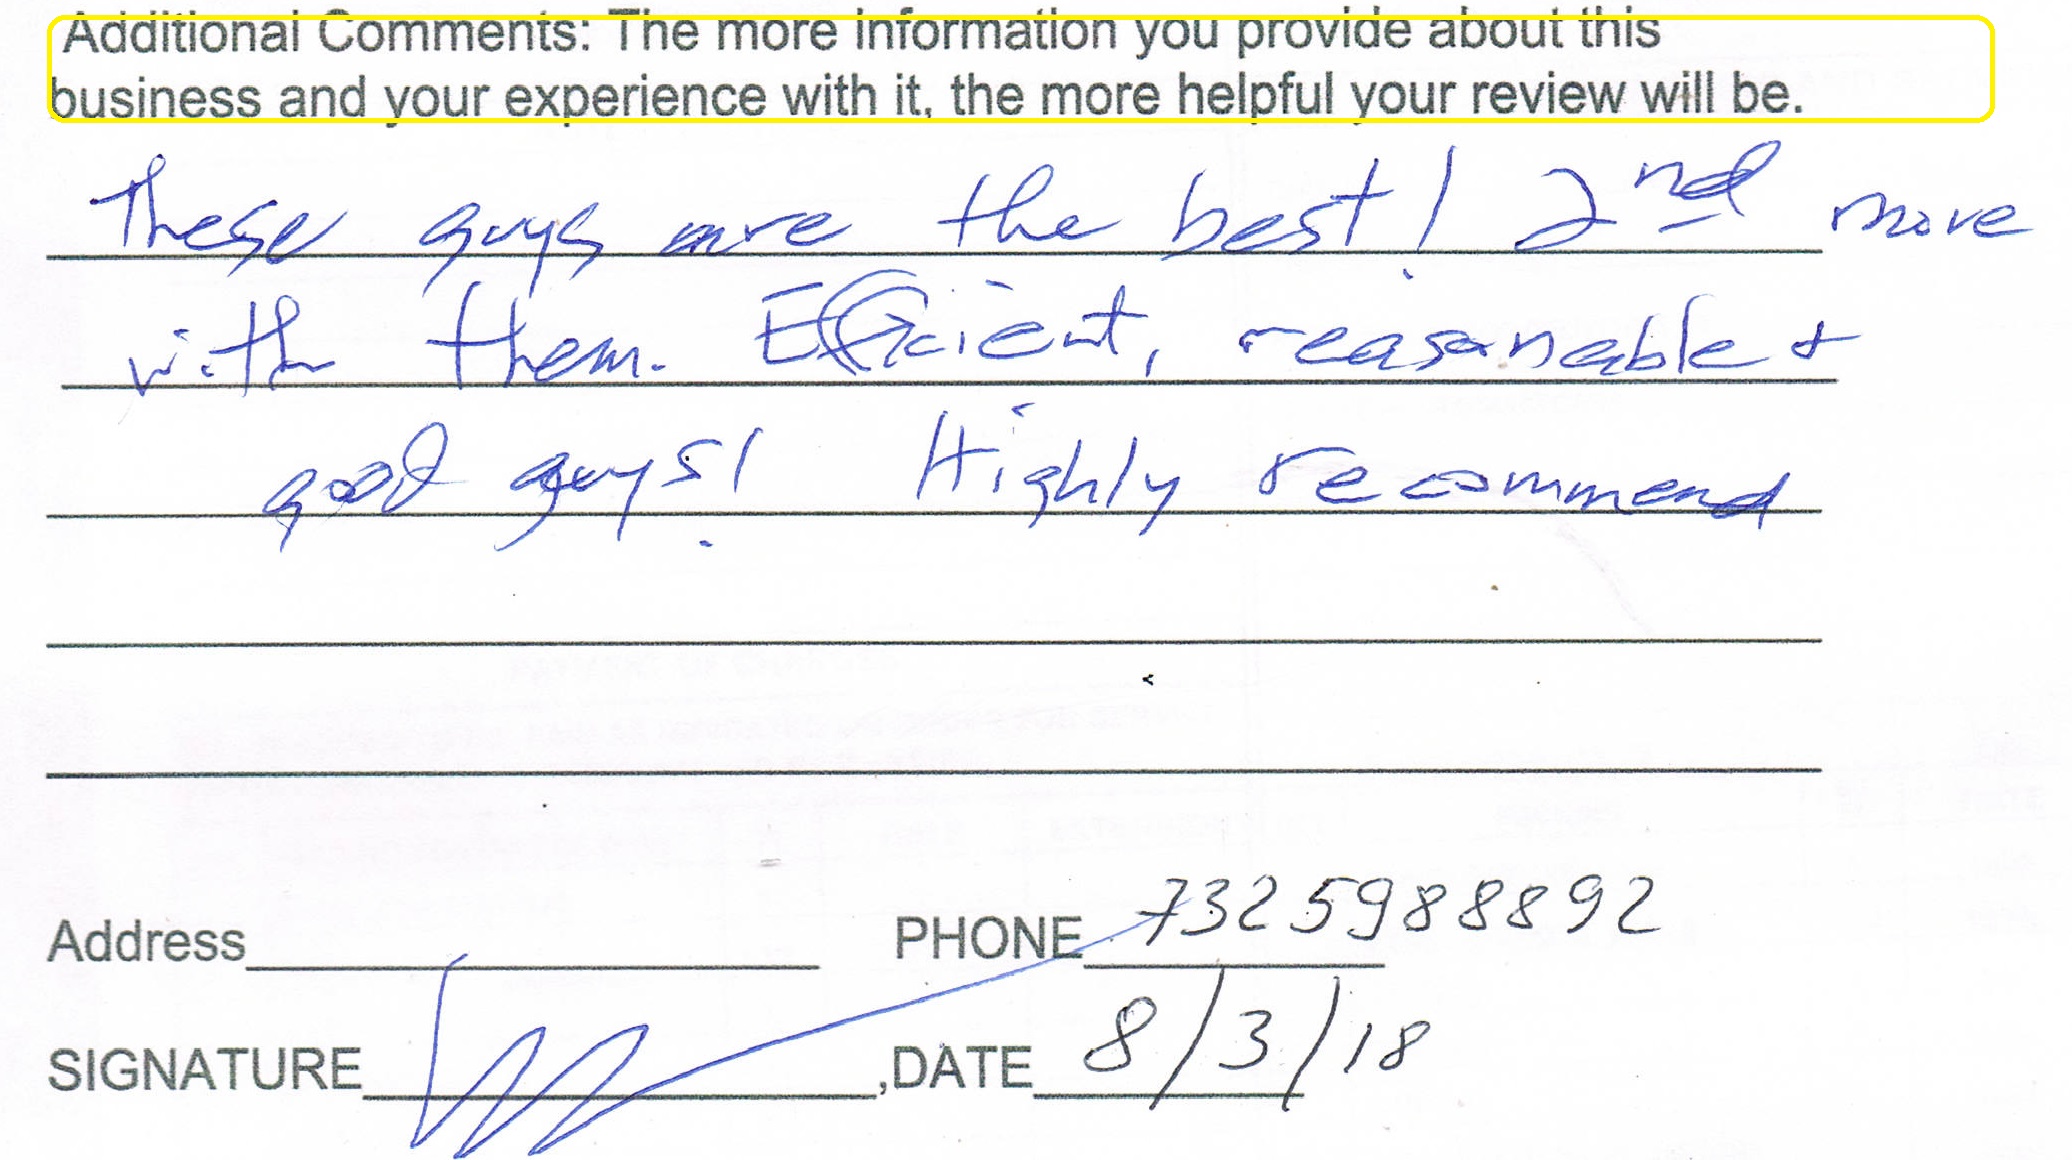 Additional Comments: The more information you provide about this
business and your experience with it, the more helpful your review will be.
These guys are the best! 2nd move
with them. Efficient, reasonable &
good guys! Highly recommend
Address PHONE 7325988892
SIGNATURE ,DATE 8/3/18